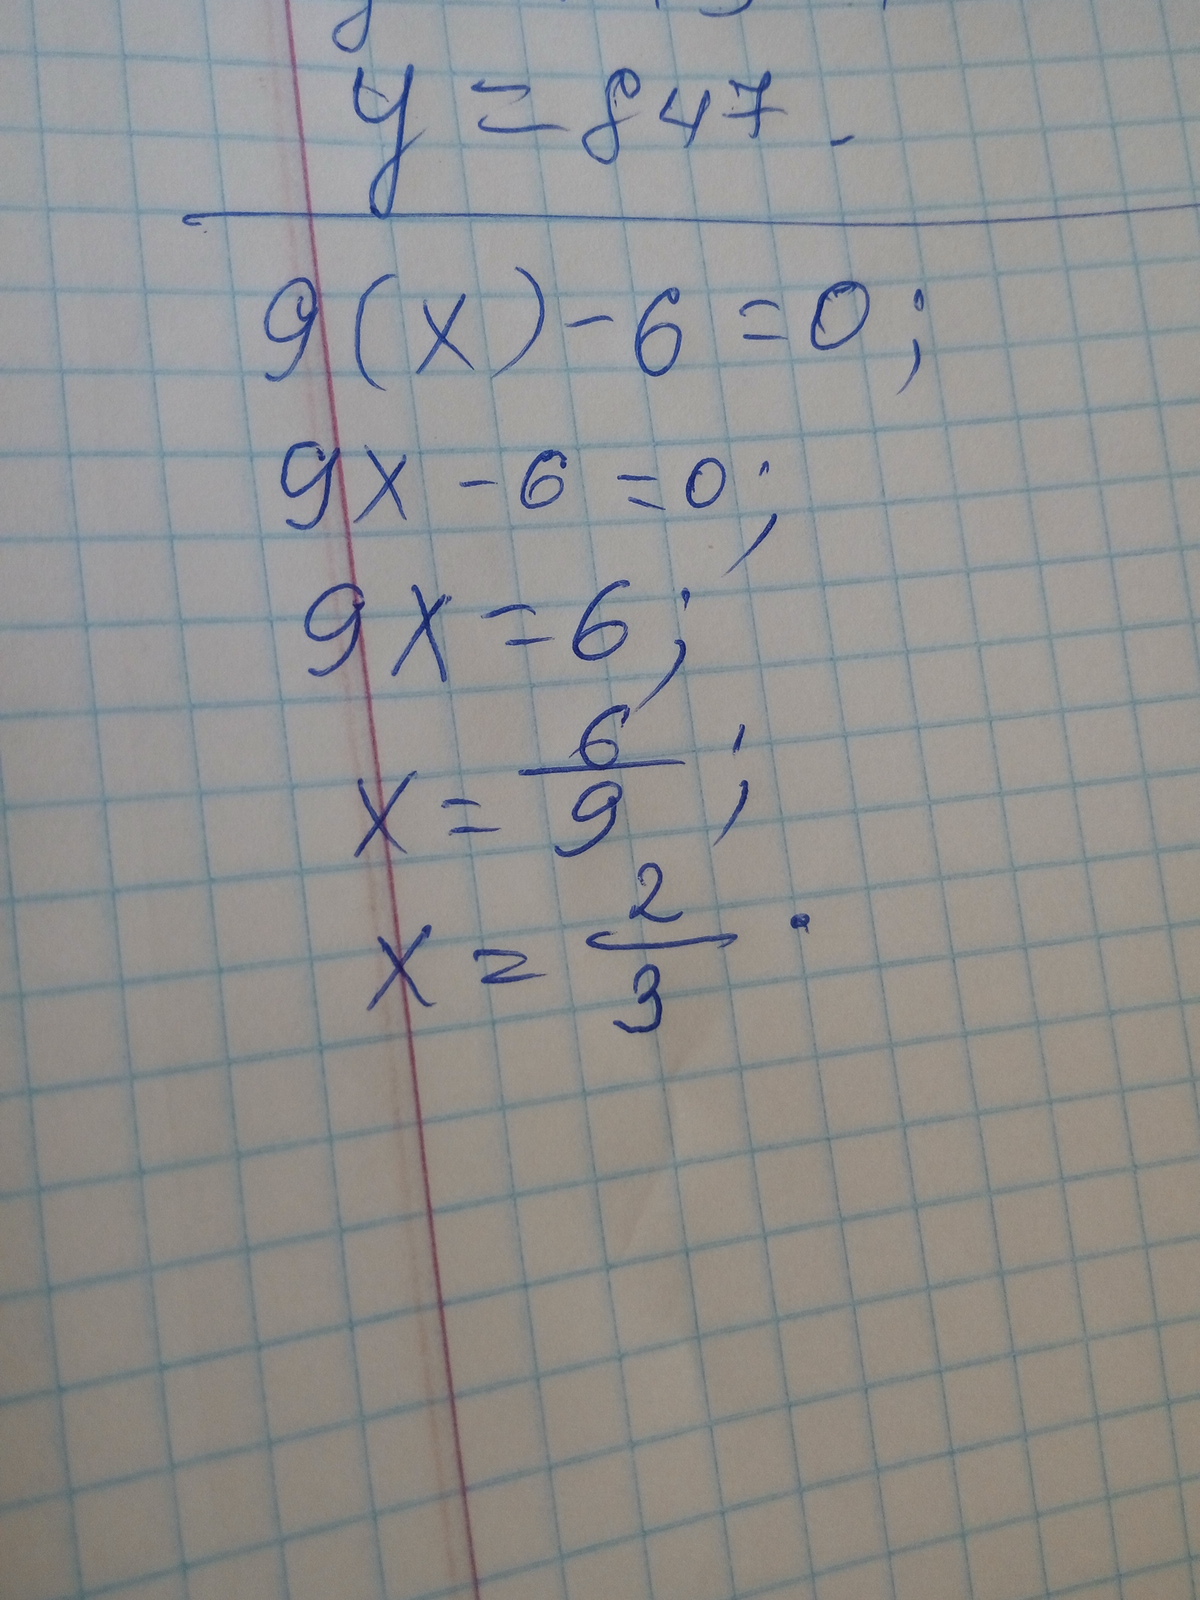 y = 847.
9(x) - 6 = 0;
9x - 6 = 0;
9x = 6;
x = 6/9;
x = 2/3.